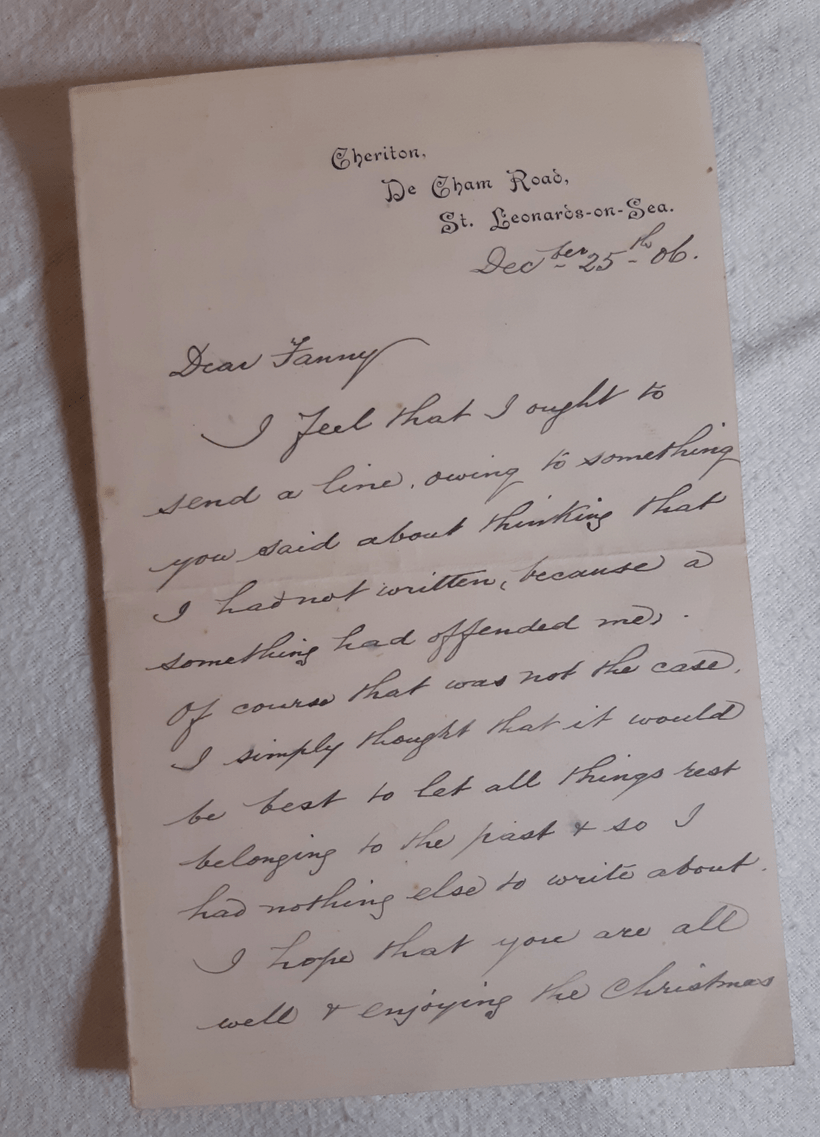 Cheriton,
De Cham Road,
St. Leonards-on-Sea.
Decber 25th 06.
Dear Fanny
I feel that I ought to
send a line, owing to something
you said about thinking that
I had not written, because a
something had offended me.
Of course that was not the case.
I simply thought that it would
be best to let all things rest
belonging to the past & so I
had nothing else to write about.
I hope that you are all
well & enjoying the Christmas